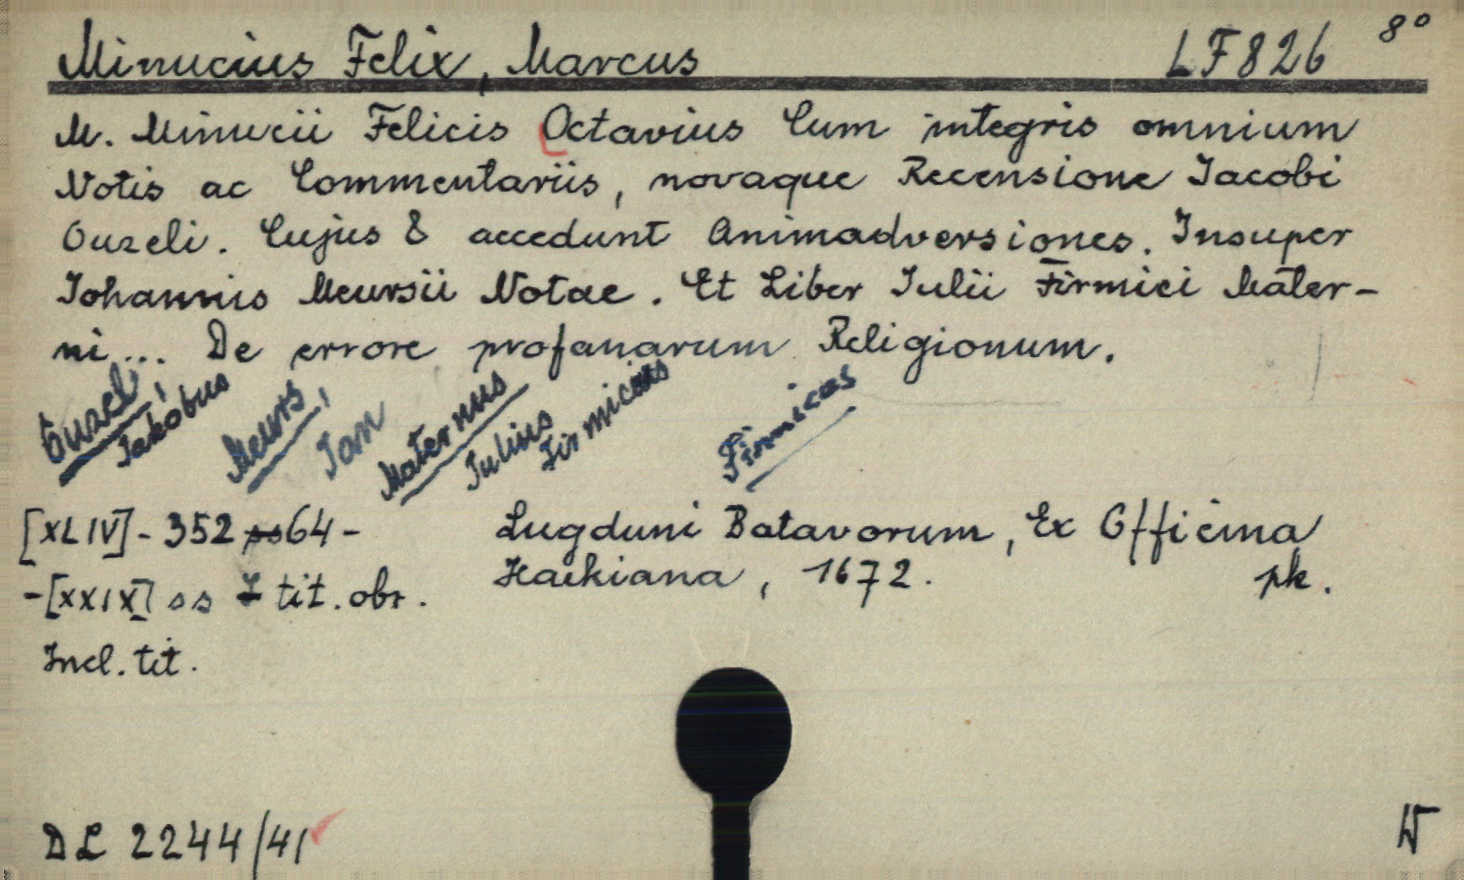 Minucius Felix, Marcus LF 826 8°
M. Minucii Felicis Octavius Cum integris omnium
Notis ac Commentariis, novaque Recensione Iacobi
Ouzeli. Cujus & accedunt Animadversiones. Insuper
Iohannis Meursii Notae. Et Liber Iulii Firmici Mater-
ni... De errore profanarum Religionum.
Ouzel, Jakobus
Meurs, Jan
Maternus Iulius Firmicus
Firmicus
[XLIV] - 352 ss 64 -
- [XXIX] ss 1 tit. obr.
Incl. tit.
Lugduni Batavorum, Ex Officina
Hackiana, 1672. pk.
DL 2244/41
W